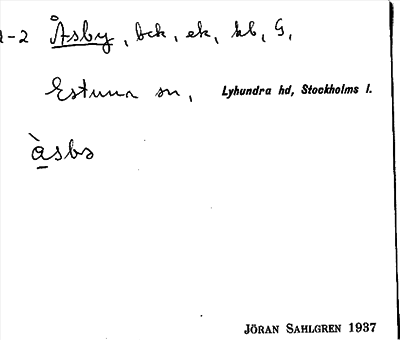 1-2 Åsby, bck, ek, kb, G,
Estuna sn, Lyhundra hd, Stockholms l.
àsbs
JÖRAN SAHLGREN 1937